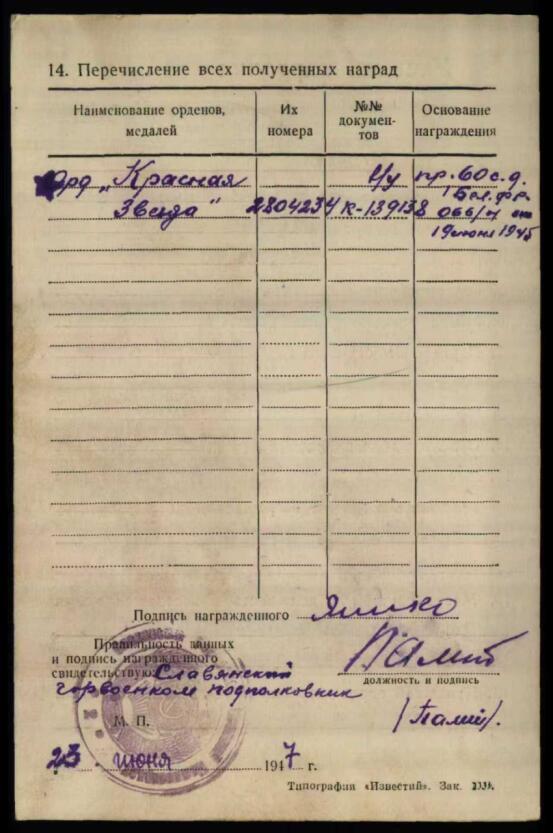 14. Перечисление всех полученных наград
Наименование орденов, медалей
Их номера
№№ документов
Основание награждения
Орд „Красная Звезда" 2804234 в/у К-139138 пр. 60 с.д. 1 Бел. фр. 066/н от 19 июня 1945
Подпись награжденного Яшко
Правильность данных
и подпись награжденного
свидетельствую: Славянский
горвоенком подполковник
должность и подпись
М. П.
23 июня 1947 г.
Типография «Известий». Зак.